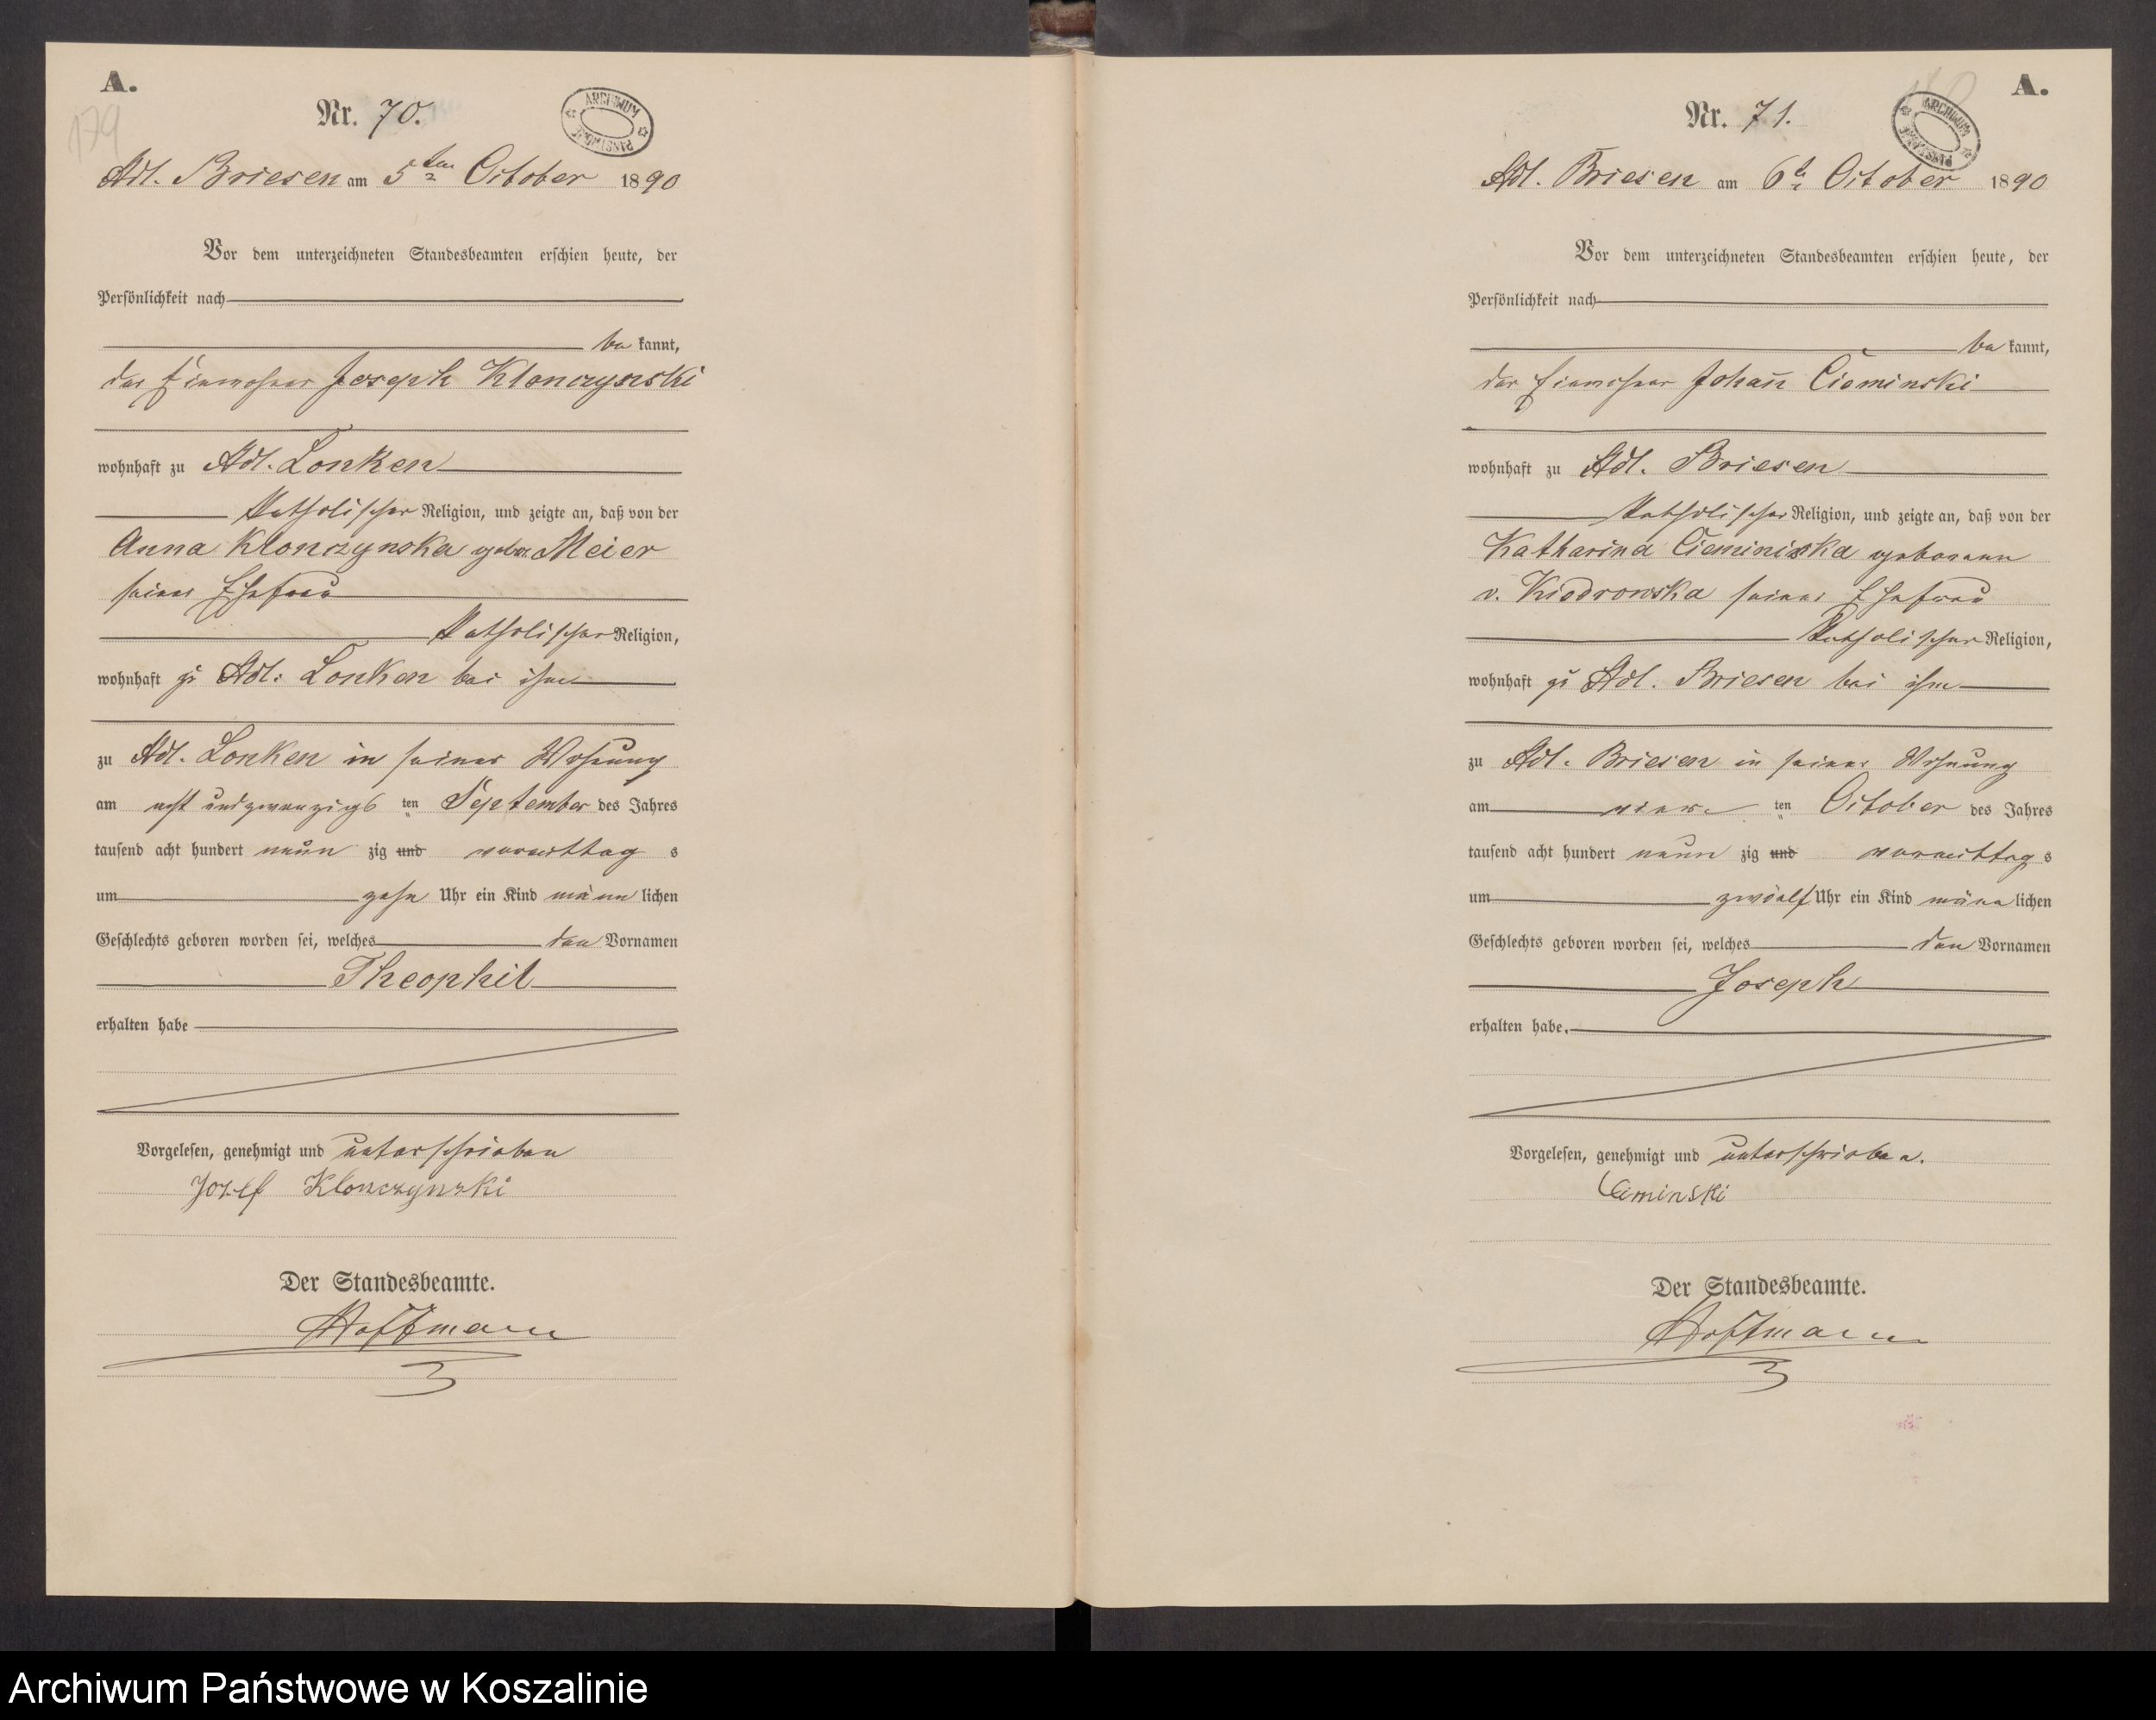 A.
179
Nr. 70.
ARCHIWUM PAŃSTWOWE
Adl. Briesen am 5ten October 1890
Vor dem unterzeichneten Standesbeamten erschien heute, der
Persönlichkeit nach
be kannt,
der Einwohner Joseph Klonczynski
wohnhaft zu Adl. Lonken
katholischer Religion, und zeigte an, daß von der
Anna Klonczynska gebor. Meier
seiner Ehefrau
katholischer Religion,
wohnhaft zu Adl. Lonken bei ihm
zu Adl. Lonken in seiner Wohnung
am acht und zwanzigs ten September des Jahres
tausend acht hundert neun zig und vormittag s
um zehn Uhr ein Kind männ lichen
Geschlechts geboren worden sei, welches den Vornamen
Theophil
erhalten habe
Vorgelesen, genehmigt und unterschrieben
Jozef Klonczynski
Der Standesbeamte.
Hoffmann
A.
Nr. 71.
ARCHIWUM PAŃSTWOWE
Adl. Briesen am 6t October 1890
Vor dem unterzeichneten Standesbeamten erschien heute, der
Persönlichkeit nach
be kannt,
der Einwohner Johann Cieminski
wohnhaft zu Adl. Briesen
katholischer Religion, und zeigte an, daß von der
Katharina Cieminska geborenen
v. Kiedrowska seiner Ehefrau
katholischer Religion,
wohnhaft zu Adl. Briesen bei ihm
zu Adl. Briesen in seiner Wohnung
am ten October des Jahres
tausend acht hundert neun zig und vormittag s
um zwöelf Uhr ein Kind männ lichen
Geschlechts geboren worden sei, welches den Vornamen
Joseph
erhalten habe.
Vorgelesen, genehmigt und unterschrieben.
Ciminski
Der Standesbeamte.
Hoffmann
Archiwum Państwowe w Koszalinie